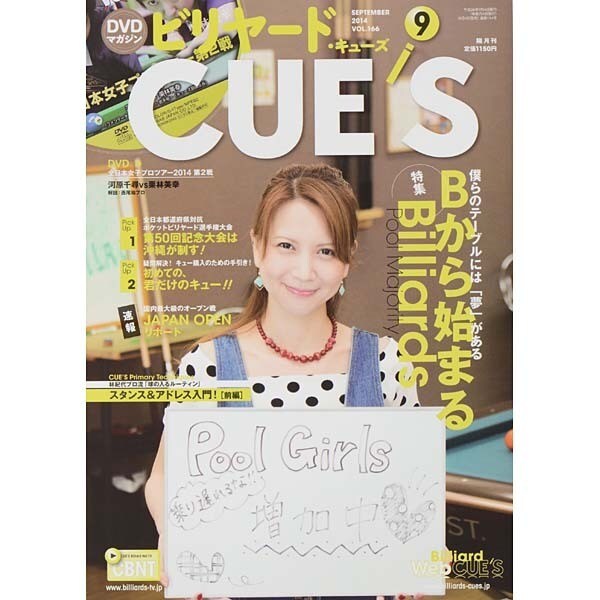 DVD
マガジン
ビリヤード・キューズ
SEPTEMBER
2014
VOL.166
9
隔月刊
定価1150円
CUE'S
DVD
全日本女子プロツアー2014 第2戦
河原千尋vs栗林美幸
Pick Up 1
全日本都道府県対抗
ポケットビリヤード選手権大会
第50回記念大会は
沖縄が制す!
Pick Up 2
疑問解決! キュー購入のための手引き!
初めての、
君だけのキュー!!
速報
国内最大級のオープン戦
JAPAN OPEN
リポート
CUE'S Primary Tec
林紀代プロ流「球の入るルーティン」
スタンス&アドレス入門! [前編]
僕らのテーブルには「夢」がある
特集
Bから始まる
Billiards
Pool Majority
Pool Girls
乗り遅れるな!
増加中
CBNT
www.billiards-tv.jp
Billiard
Web CUE'S
www.billiards-cues.jp